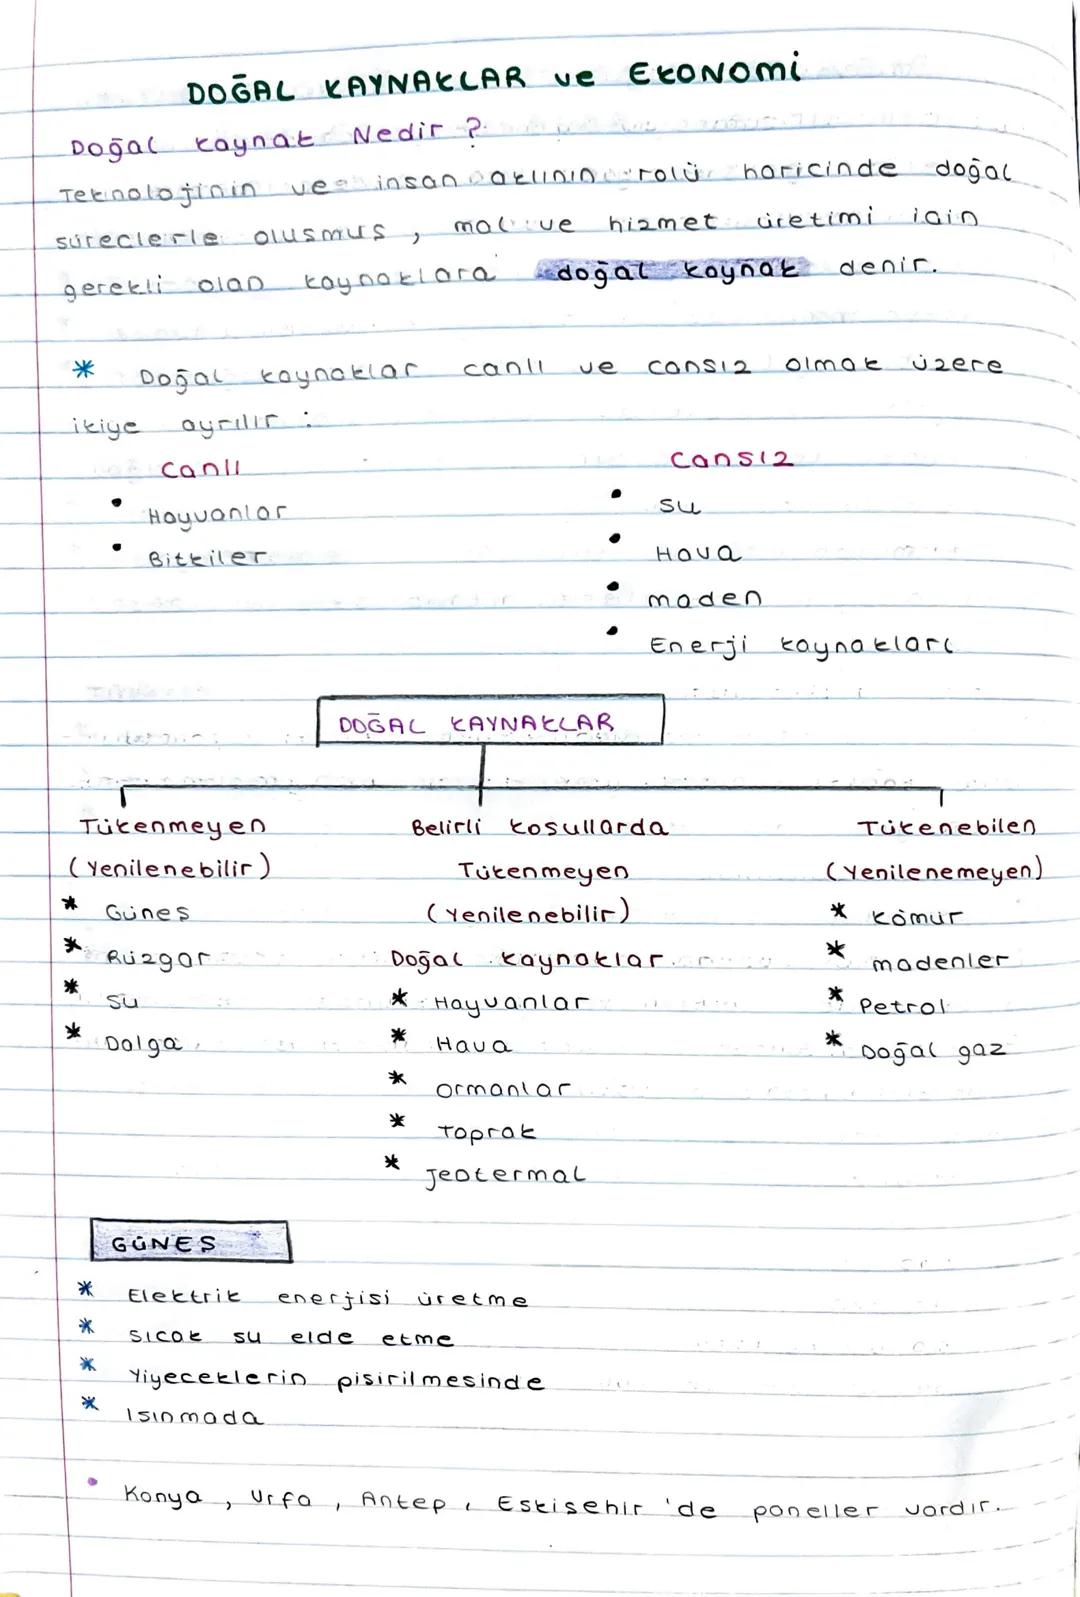 DOĞAL KAYNAKLAR ve EKONOMİ
Doğal kaynak Nedir ?
Teknolojinin ve insan aklının rolü haricinde doğal
süreclerle olusmus , mal ve hizmet üretimi icin
gerekli olan kaynaklara doğal kaynak denir.
* Doğal kaynaklar canlı ve cansız olmak üzere
ikiye ayrılır :
Canlı
• Hayvanlar
• Bitkiler
Cansız
• su
• Hava
• maden
• Enerji kaynakları
DOĞAL KAYNAKLAR
Tükenmeyen
(Yenilenebilir)
* Günes
* Rüzgar
* su
* Dalga
Belirli kosullarda
Tükenmeyen
(Yenilenebilir)
Doğal kaynaklar
* Hayvanlar
* Hava
* Ormanlar
* Toprak
* Jeotermal
Tükenebilen
(Yenilenemeyen)
* Kömür
* madenler
* Petrol
* Doğal gaz
GÜNES
* Elektrik enerjisi üretme
* sıcak su elde etme
* Yiyeceklerin pisirilmesinde
* Isınmada
• Konya , Urfa , Antep , Eskisehir 'de paneller vardır.